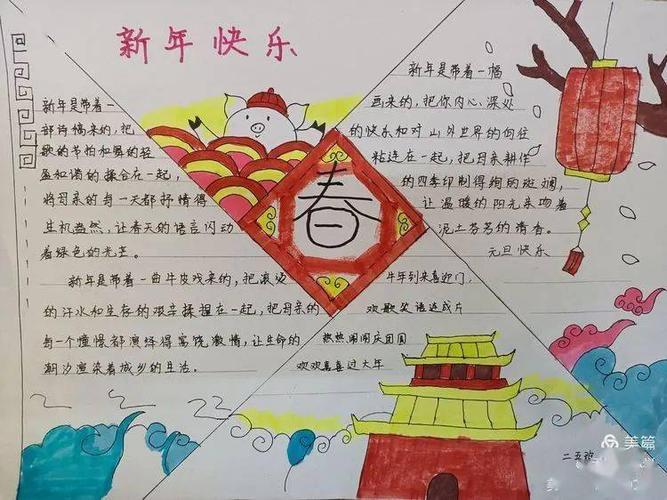 新年快乐
新年是带着一
部诗情来的，把
歌的节拍和舞的轻
盈和谐的揉合在一起，
将母亲的每一天都抒情得
生机盎然，让春天的语言闪动
着绿色的光芒。
新年是带着一曲牛皮戏来的，把滚烫
的汗水和生存的艰辛揉捏在一起，把母亲的
每一个憧憬都演绎得富饶激情，让生命的
潮汐渲染着城乡的生活。
春
新年是带着一幅
画来的，把你内心深处
的快乐和对山外世界的向往
粘连在一起，把母亲耕作
的四季印制得绚丽斑斓，
让温暖的阳光来吻着
泥土芬芳的清香。
元旦快乐
牛年到来喜迎门，
欢歌笑语连成片
热热闹闹庆团圆
欢欢喜喜过大年
二五班
美篇